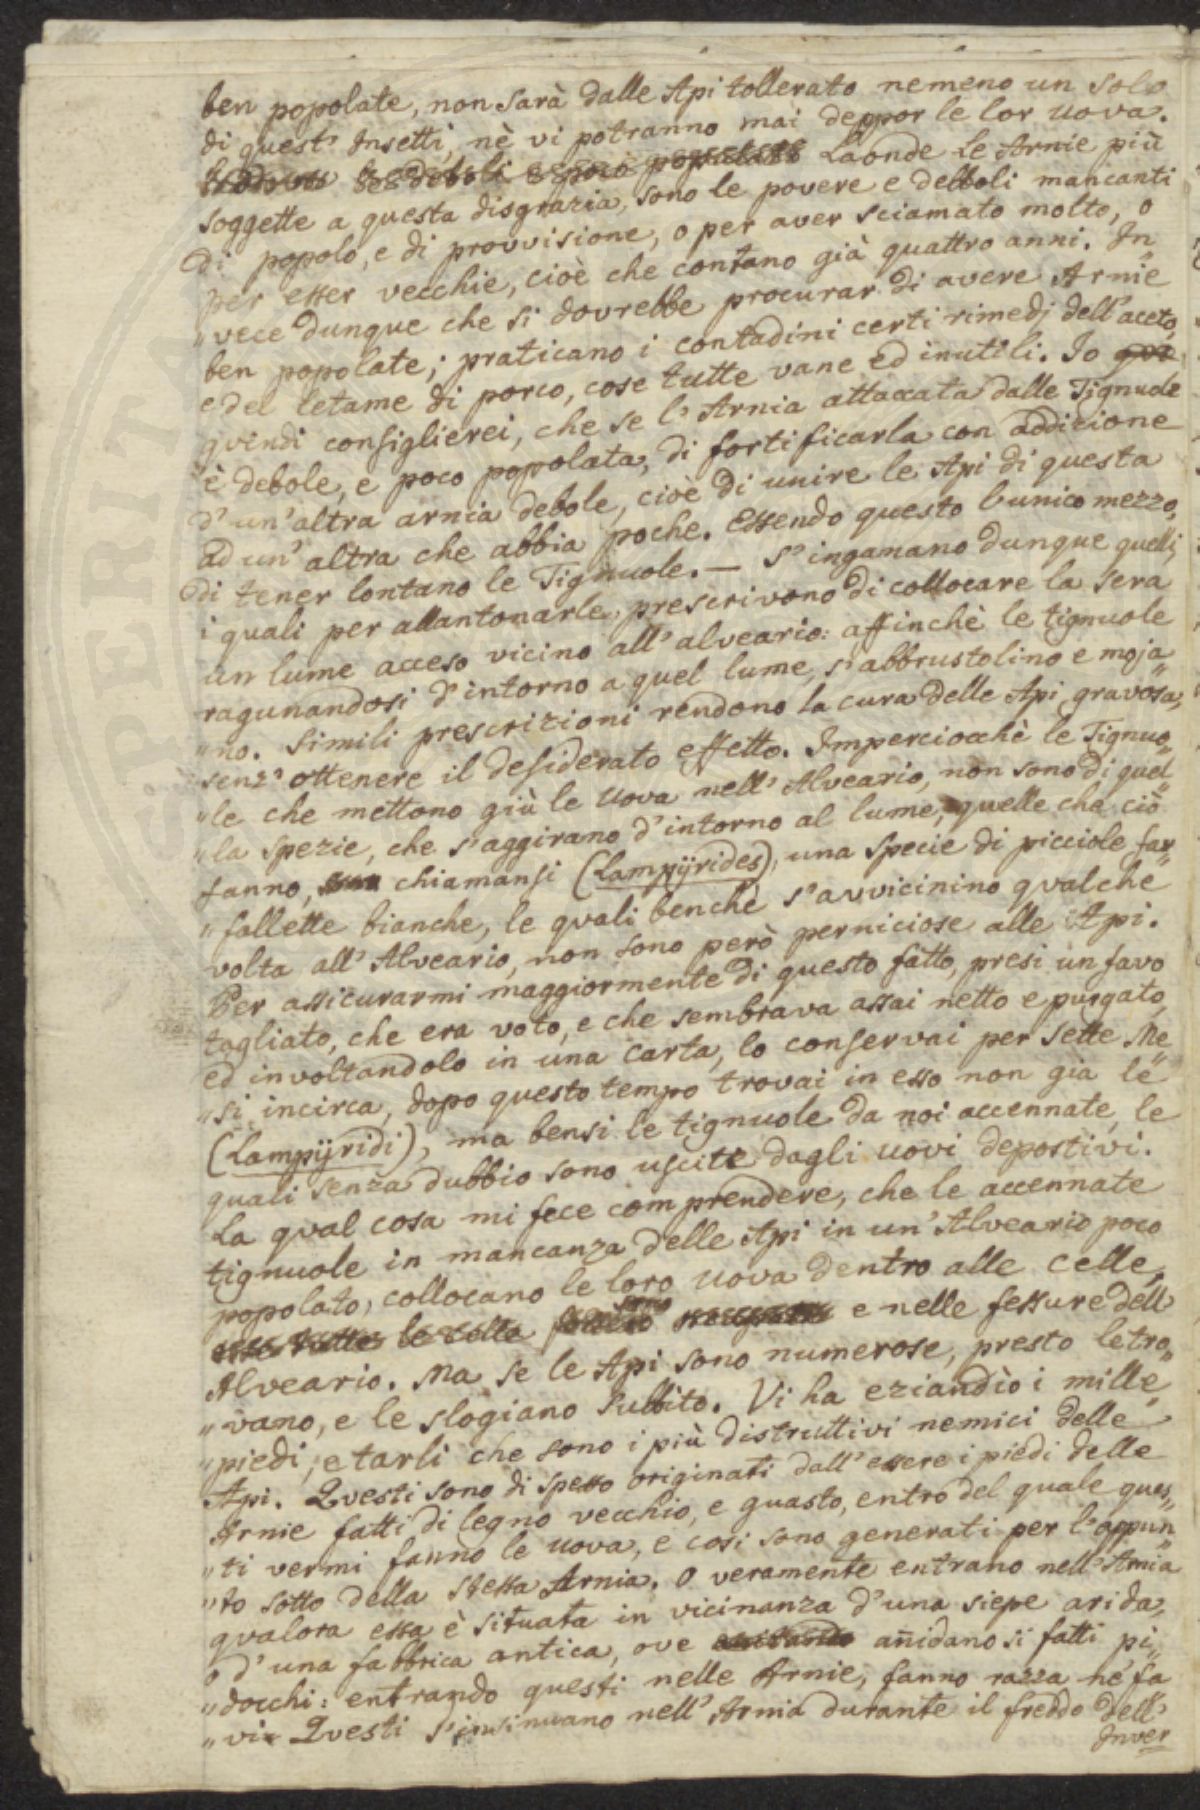 ben popolate, non sarà dalle Api tollerato nemeno un solo
di quest' Insetti, nè vi potranno mai deppor le lor uova.
Laonde le Arnie più
soggette a questa disgrazia, sono le povere e debboli mancanti
di popolo, e di provvisione, o per aver sciamato molto, o
per esser vecchie, cioè che contano già quattro anni. In„
„vece dunque che si dovrebbe procurar di avere Arnie
ben popolate; praticano i contadini certi rimedj dell'aceto,
e del letame di porco, cose tutte vane ed inutili. Io
quindi consiglierei, che se l'Arnia attaccata dalle Tignuole
è debole, e poco popolata, di fortificarla con addizione
d'un'altra arnia debole, cioè di unire le Api di questa
ad un'altra che abbia poche. Essendo questo l'unico mezzo,
di tener lontano le Tignuole. — S'ingamano dunque quelli,
i quali per allantonarle, prescrivono di collocare la sera
un lume acceso vicino all'alveario: affinchè le tignuole
ragunandosi d'intorno a quel lume, s'abbrustolino e moja„
„no. Simili prescrizioni rendono la cura delle Api gravosa,
senz'ottenere il desiderato effetto. Imperciocchè le Tignuo„
„le che mettono giù le Uova nell'Alveario, non sono di quel„
„la spezie, che s'aggirano d'intorno al lume, quelle che ciò
fanno, chiamansi (Lampÿrides), una specie di picciole far„
„fallette bianche, le quali benchè s'avvicinino qualche
volta all'Alveario, non sono però perniciose alle Api.
Per assicurarmi maggiormente di questo fatto, presi un favo
tagliato, che era voto, e che sembrava assai netto e purgato,
ed involtandolo in una carta, lo conservai per sette Me„
„si incirca, dopo questo tempo trovai in esso non gia le
(Lampÿridi), ma bensi le tignuole da noi accennate, le
quali senza dubbio sono uscite dagli uovi depostivi.
La qual cosa mi fece comprendere, che le accennate
tignuole in mancanza delle Api in un'Alveario poco
popolato, collocano le loro uova dentro alle celle,
e nelle fessure dell'
Alveario. Ma se le Api sono numerose, presto le tro„
„vano, e le slogiano subbito. Vi ha eziandìo i mille„
„piedi, e tarli che sono i più distruttivi nemici delle
Api. Questi sono di spesso originati dall'essere i piedi delle
Arnie fatti di legno vecchio, e guasto, entro del quale ques„
„ti vermi fanno le uova, e cosi sono generati per l'appun„
„to sotto della stessa Arnia. O veramente entrano nell'Arnia
qualora essa è situata in vicinanza d'una siepe arida,
o d'una fabbrica antica, ove añidano si fatti pi„
„docchi: entrando questi nelle Arnie, fanno razza ne' fa„
„vi. Questi s'insinuano nell'Arnia durante il freddo dell'
Inver